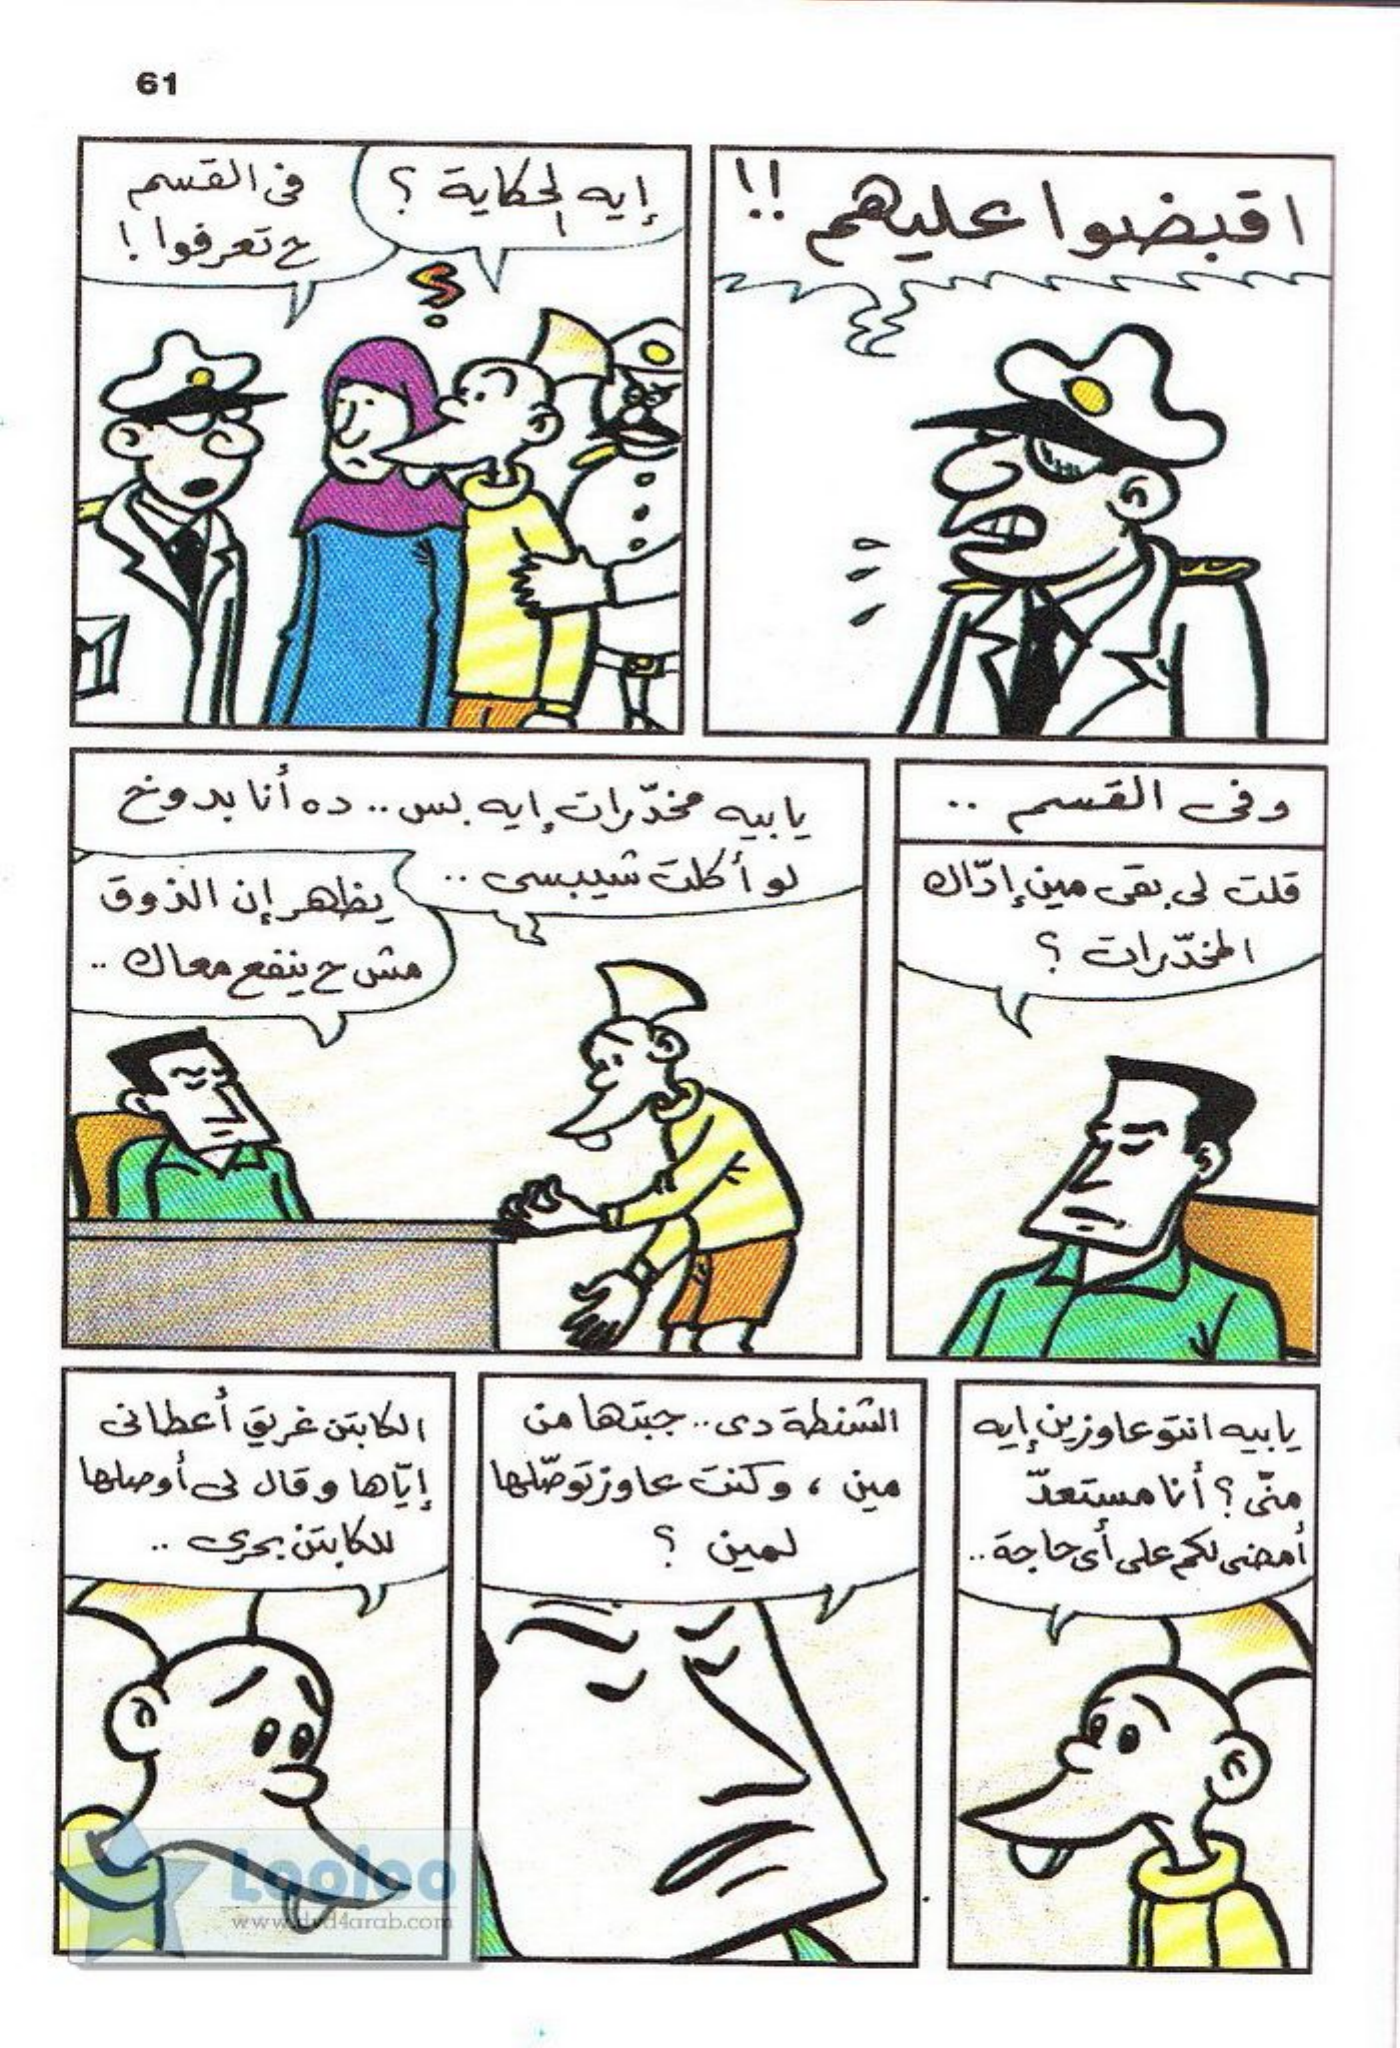 61
اقبضوا عليهم !!
إيه الحكاية ؟
فى القسم
ح تعرفوا !
وفى القسم ..
قلت لى بقى مين إدّاك
المخدّرات ؟
يا بيه مخدّرات إيه بس .. ده أنا بدوخ
لو أكلت شيبسى ..
يظهر إن الذوق
مش ح ينفع معاك ..
يا بيه انتو عاوزين إيه
منّى ؟ أنا مستعدّ
أمضى لكم على أى حاجة ..
الشنطة دى .. جبتها من
مين ، وكنت عاوز توصّلها
لمين ؟
الكابتن غريق أعطانى
إيّاها وقال لى أوصلها
للكابتن بحرى ..
Looloo
www.dvd4arab.com